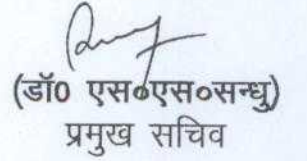 (डॉ0 एस०एस०सन्धु)
प्रमुख सचिव